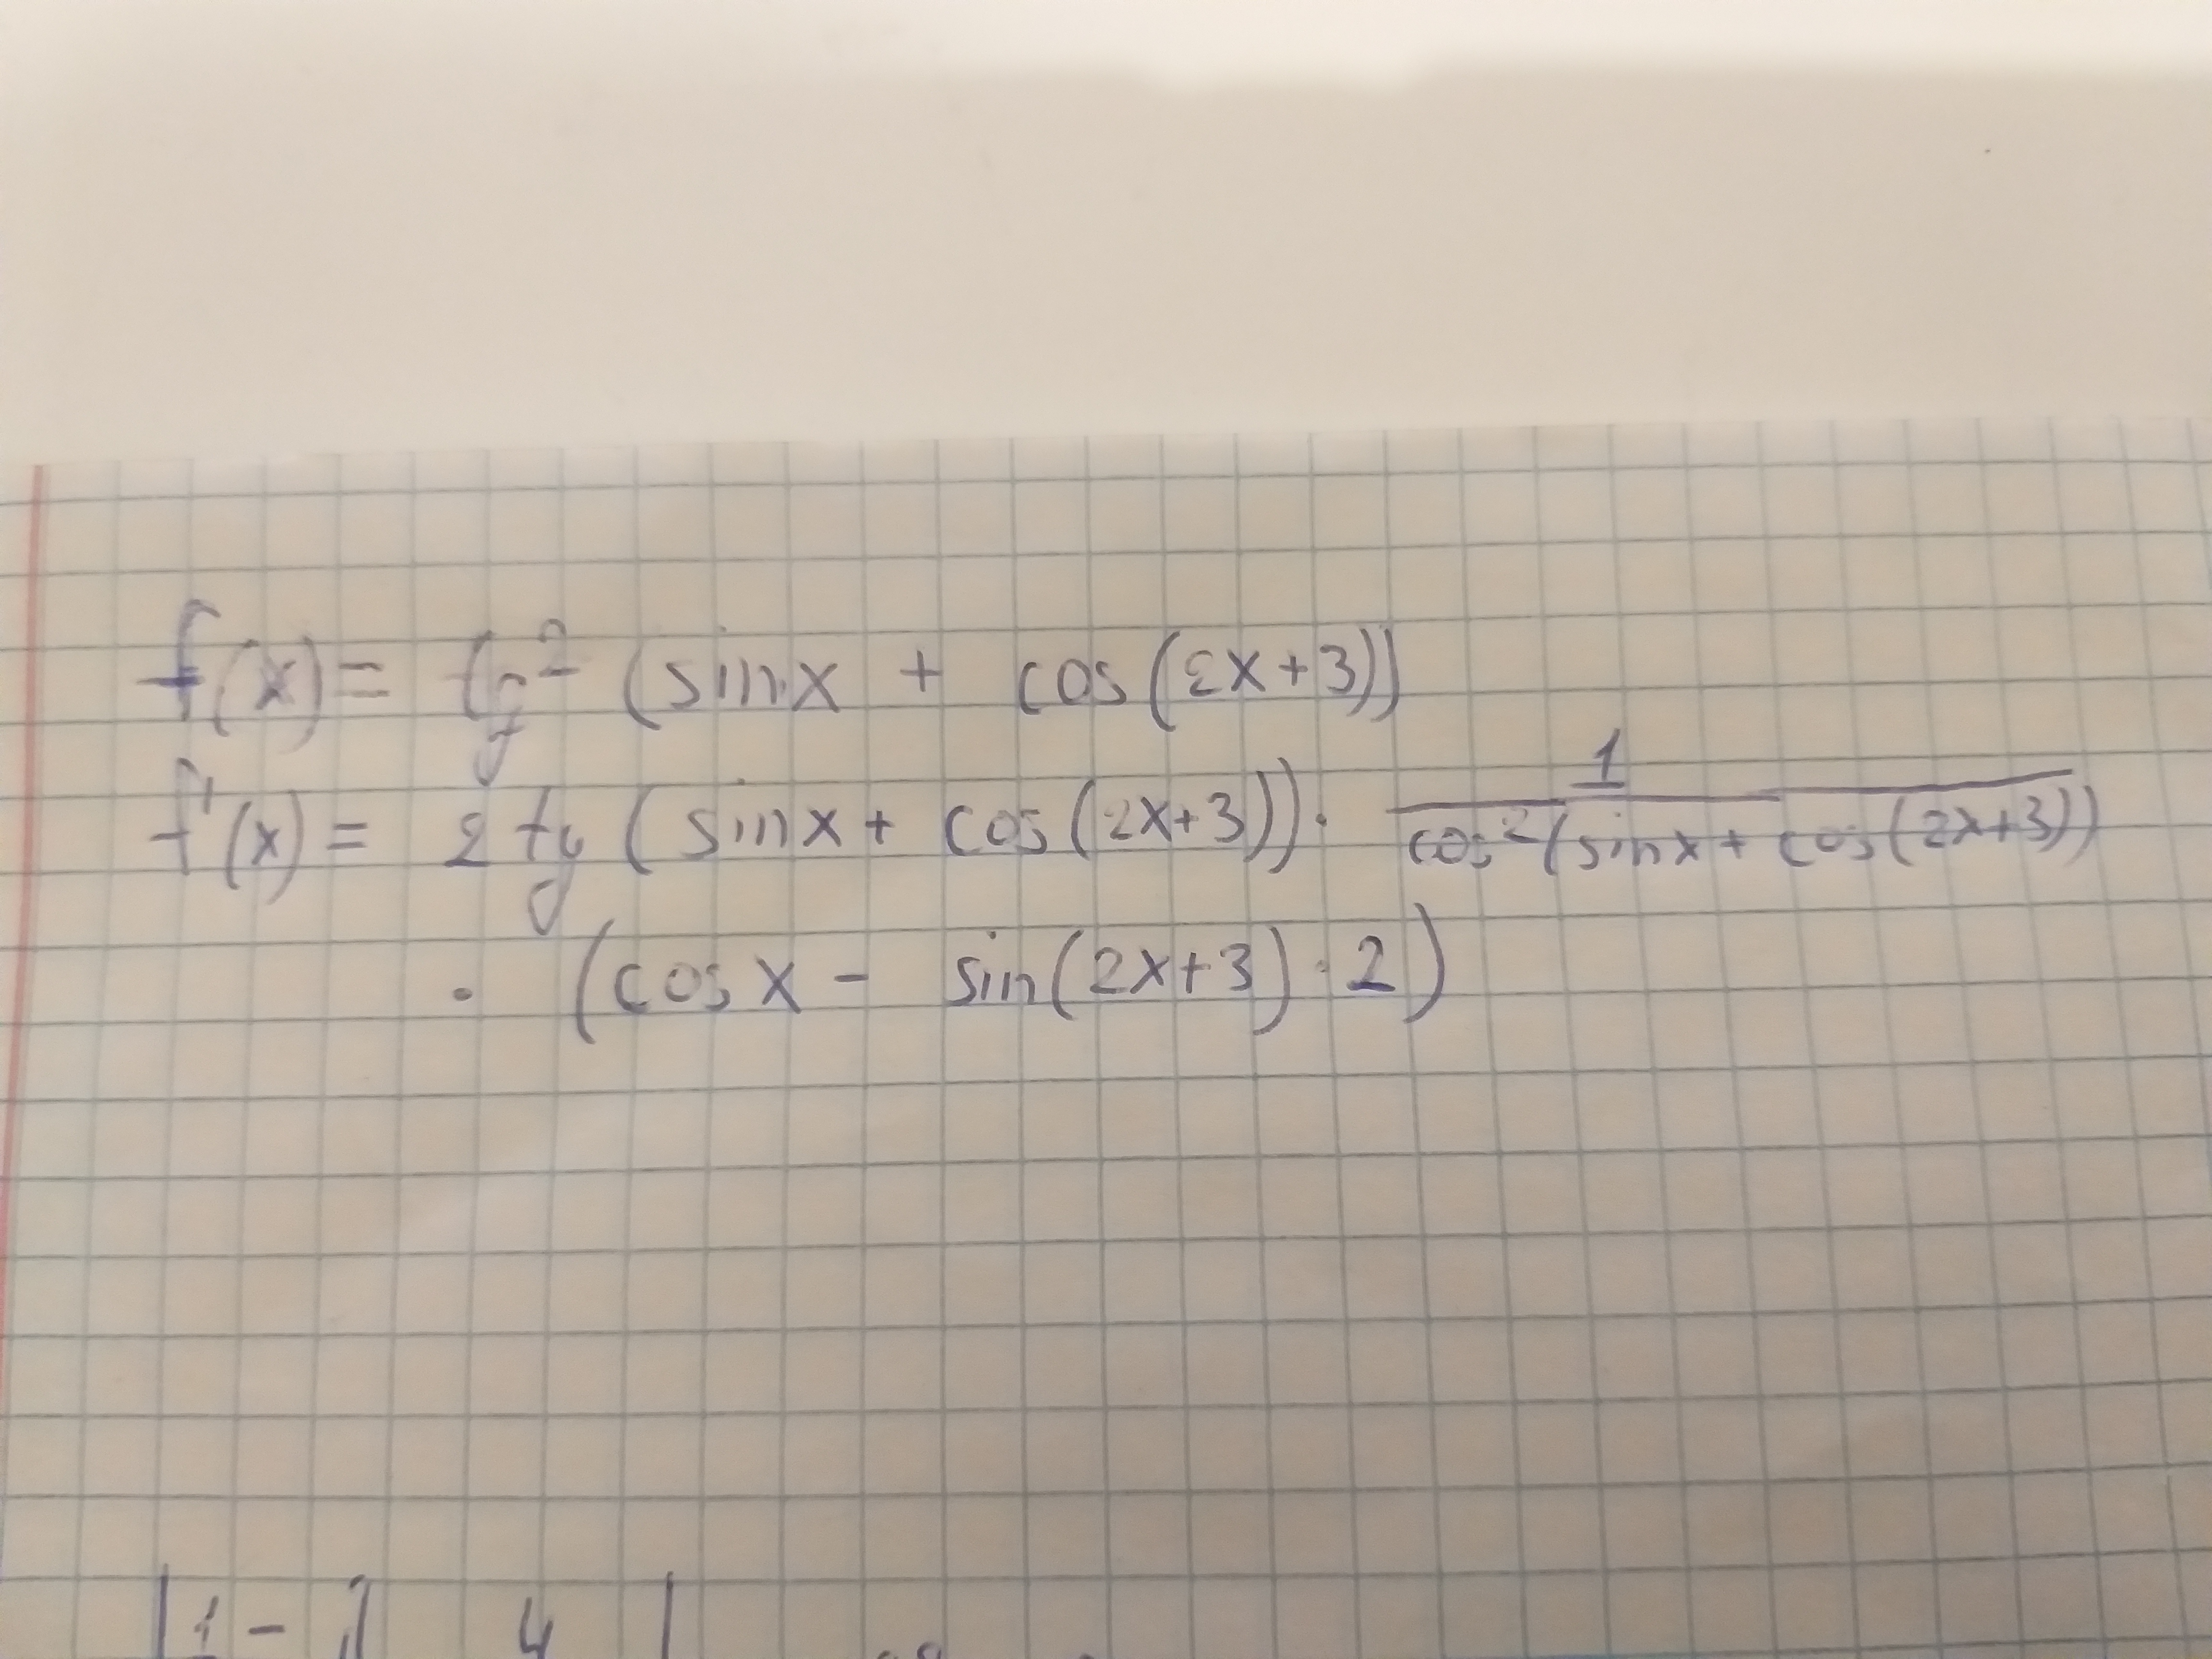 f(x) = tg² (sin x + cos (2x+3))
f'(x) = 2 tg (sin x + cos (2x+3)) · 1/cos² (sin x + cos (2x+3))
· (cos x - sin (2x+3) · 2)
|1 - λ 4 |